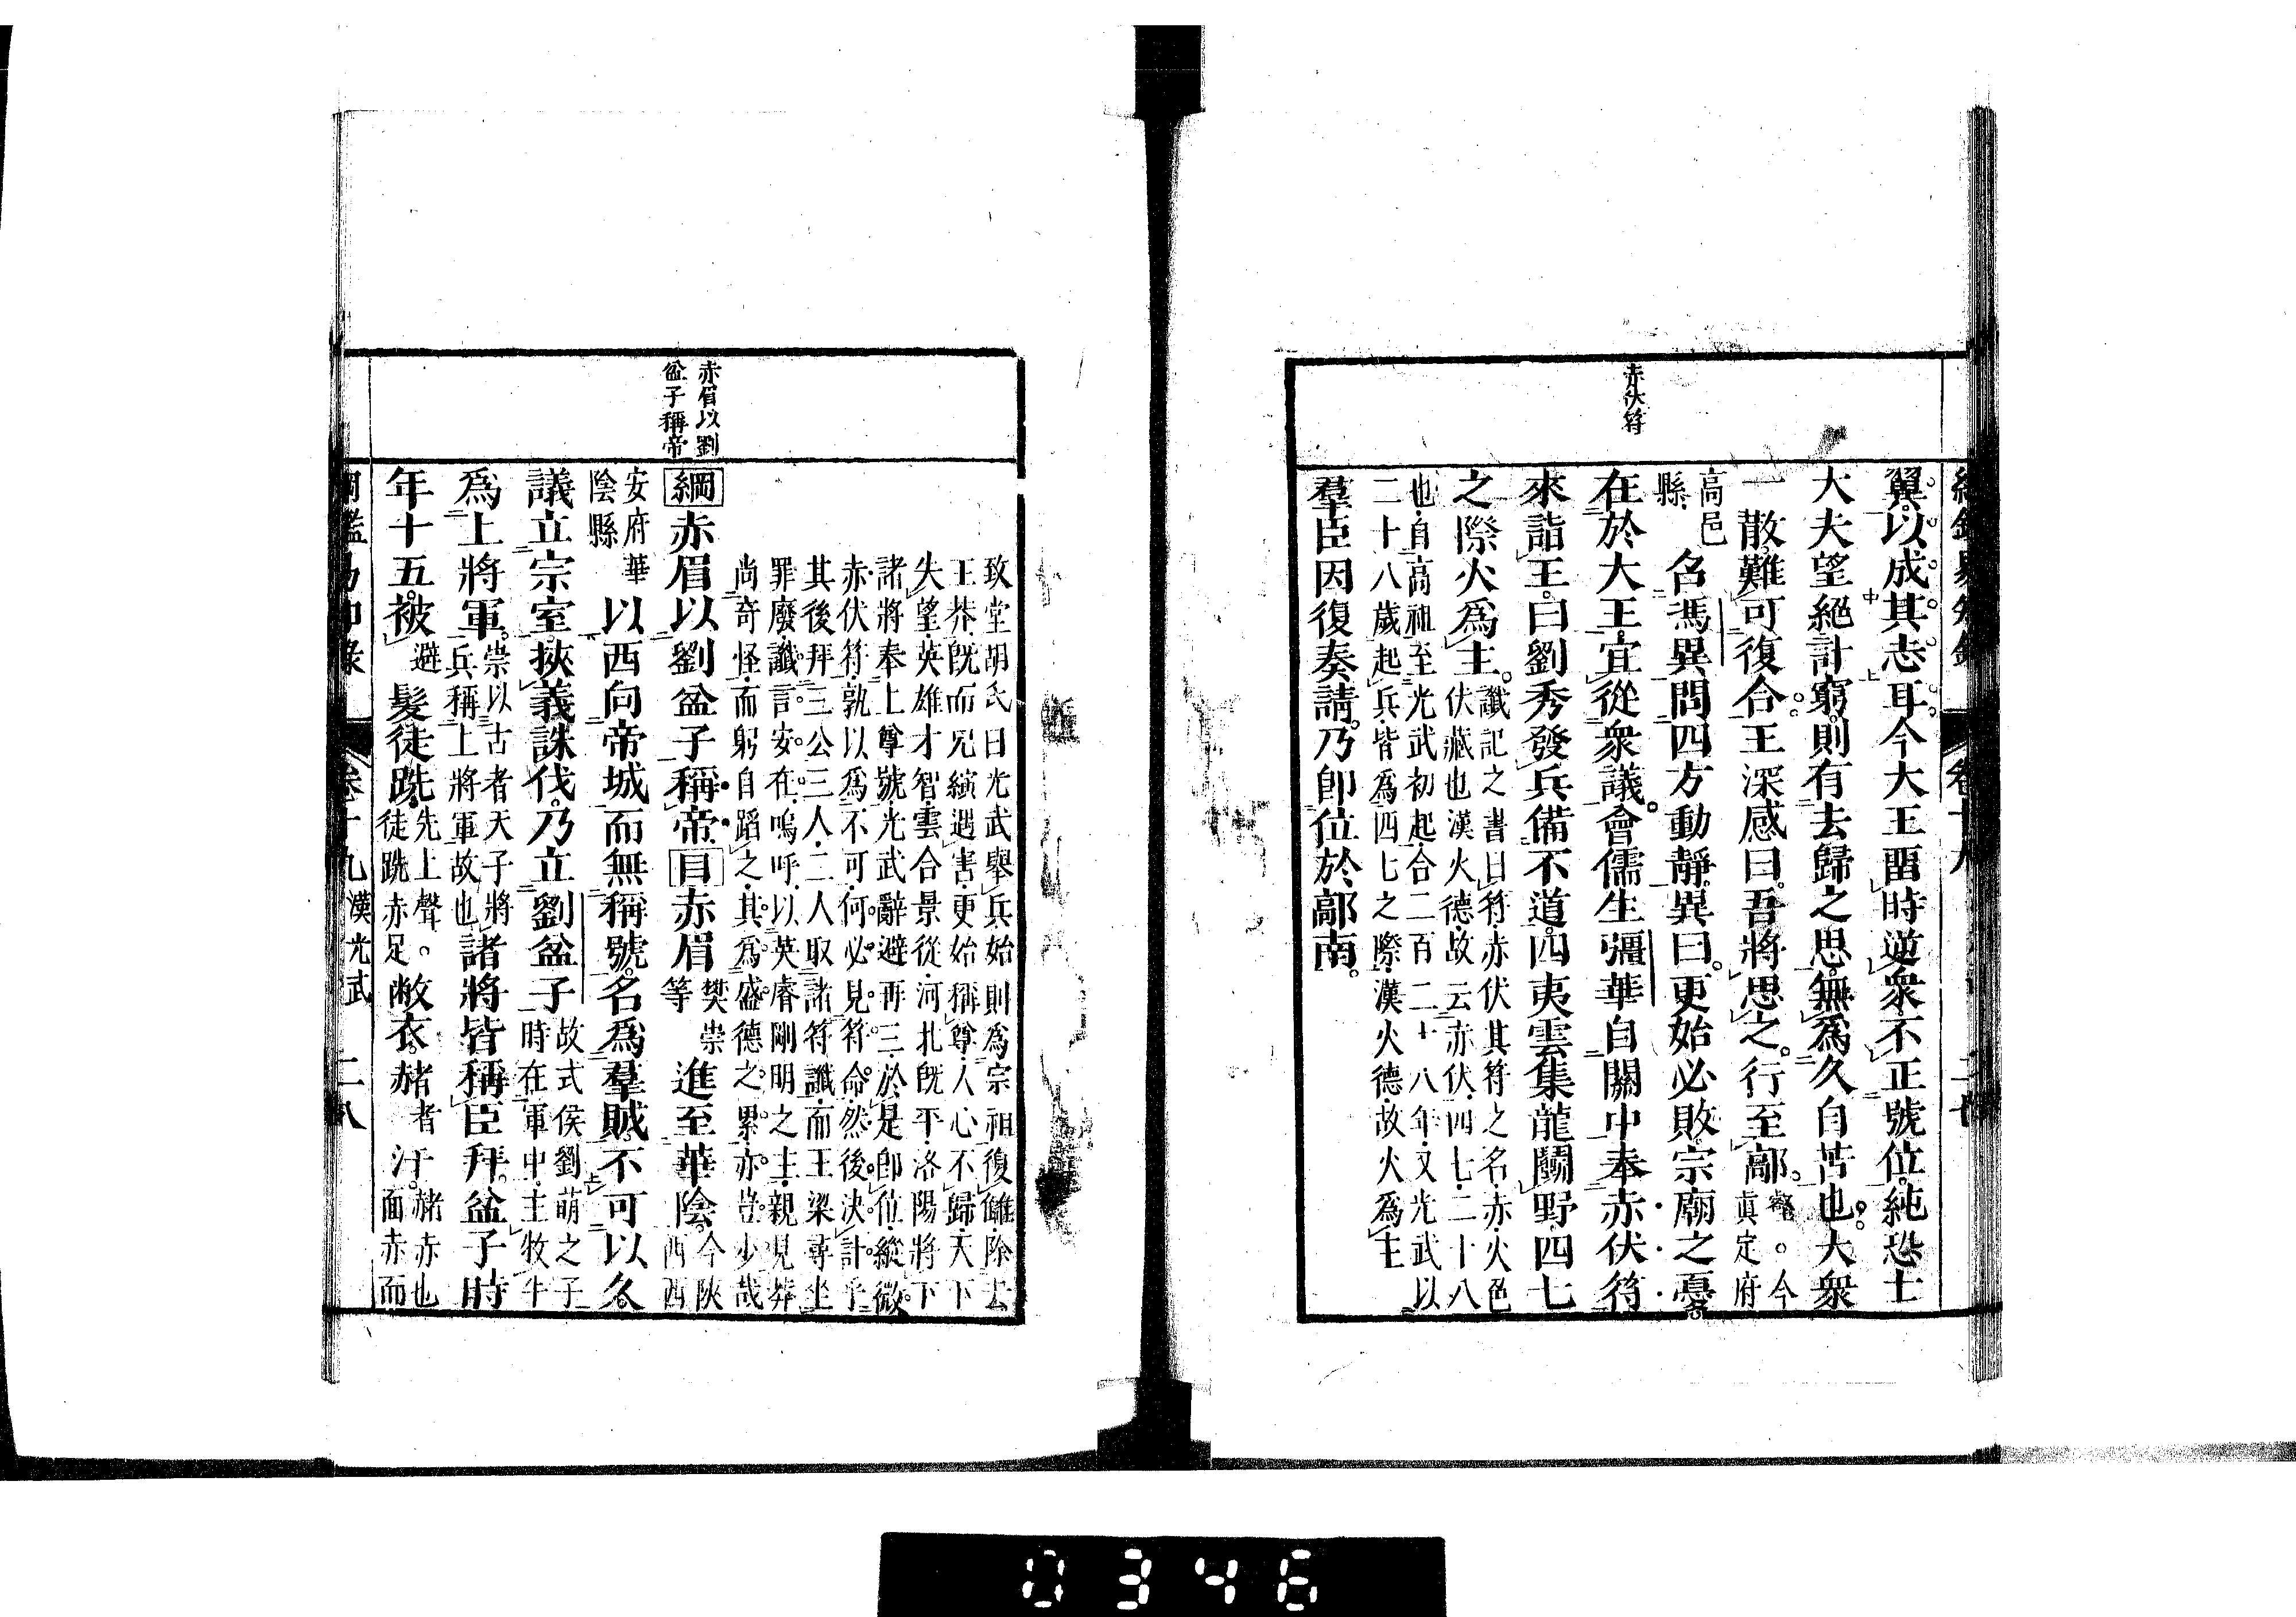 赤伏符
翼以成其志耳今大王畱時逆衆不正號位純恐士
大夫望絕計窮則有去歸之思無爲久自苦也大衆
一散難可復合王深感曰吾將思之行至鄗
今眞定府
高邑
縣
召馮異問四方動靜異曰更始必敗宗廟之憂
在於大王宜從衆議會儒生彊華自關中奉赤伏符
來詣王曰劉秀發兵備不道四夷雲集龍鬭野四七
之際火爲主
讖記之書曰符赤伏其符之名赤火色
伏藏也漢火德故云赤伏四七二十八
也自高祖至光武初起合二百二十八年又光武以
二十八歲起兵皆爲四七之際漢火德故火爲主
羣臣因復奏請乃卽位於鄗南
赤眉以劉
盆子稱帝
致堂胡氏曰光武舉兵始則爲宗祖復讎除去
王莽旣而兄縯遇害更始稱尊人心不歸天下
失望英雄才智雲合景從河北旣平洛陽將下
諸將奉上尊號光武辭避再三於是卽位縱微
赤伏符孰以爲不可何必見符命然後決計乎
其後拜三公三人二人取諸符讖而王梁尋坐
罪廢讖言安在嗚呼以英睿剛明之主親見莽
尚奇怪而躬自蹈之其爲盛德之累亦豈少哉
綱赤眉以劉盆子稱帝目赤眉
樊崇
等
進至華陰
今陝西西
安府華
陰縣
以西向帝城而無稱號名爲羣賊不可以久
議立宗室挾義誅伐乃立劉盆子
故式侯劉萌之子
時在軍中主牧牛
爲上將軍
崇以古者天子將
兵稱上將軍故也
諸將皆稱臣拜盆子時
年十五被
避
髮徒跣
先上聲
徒跣赤足
敝衣赭
者
汗
赭赤也
面赤而
卷十九
漢光武
二八